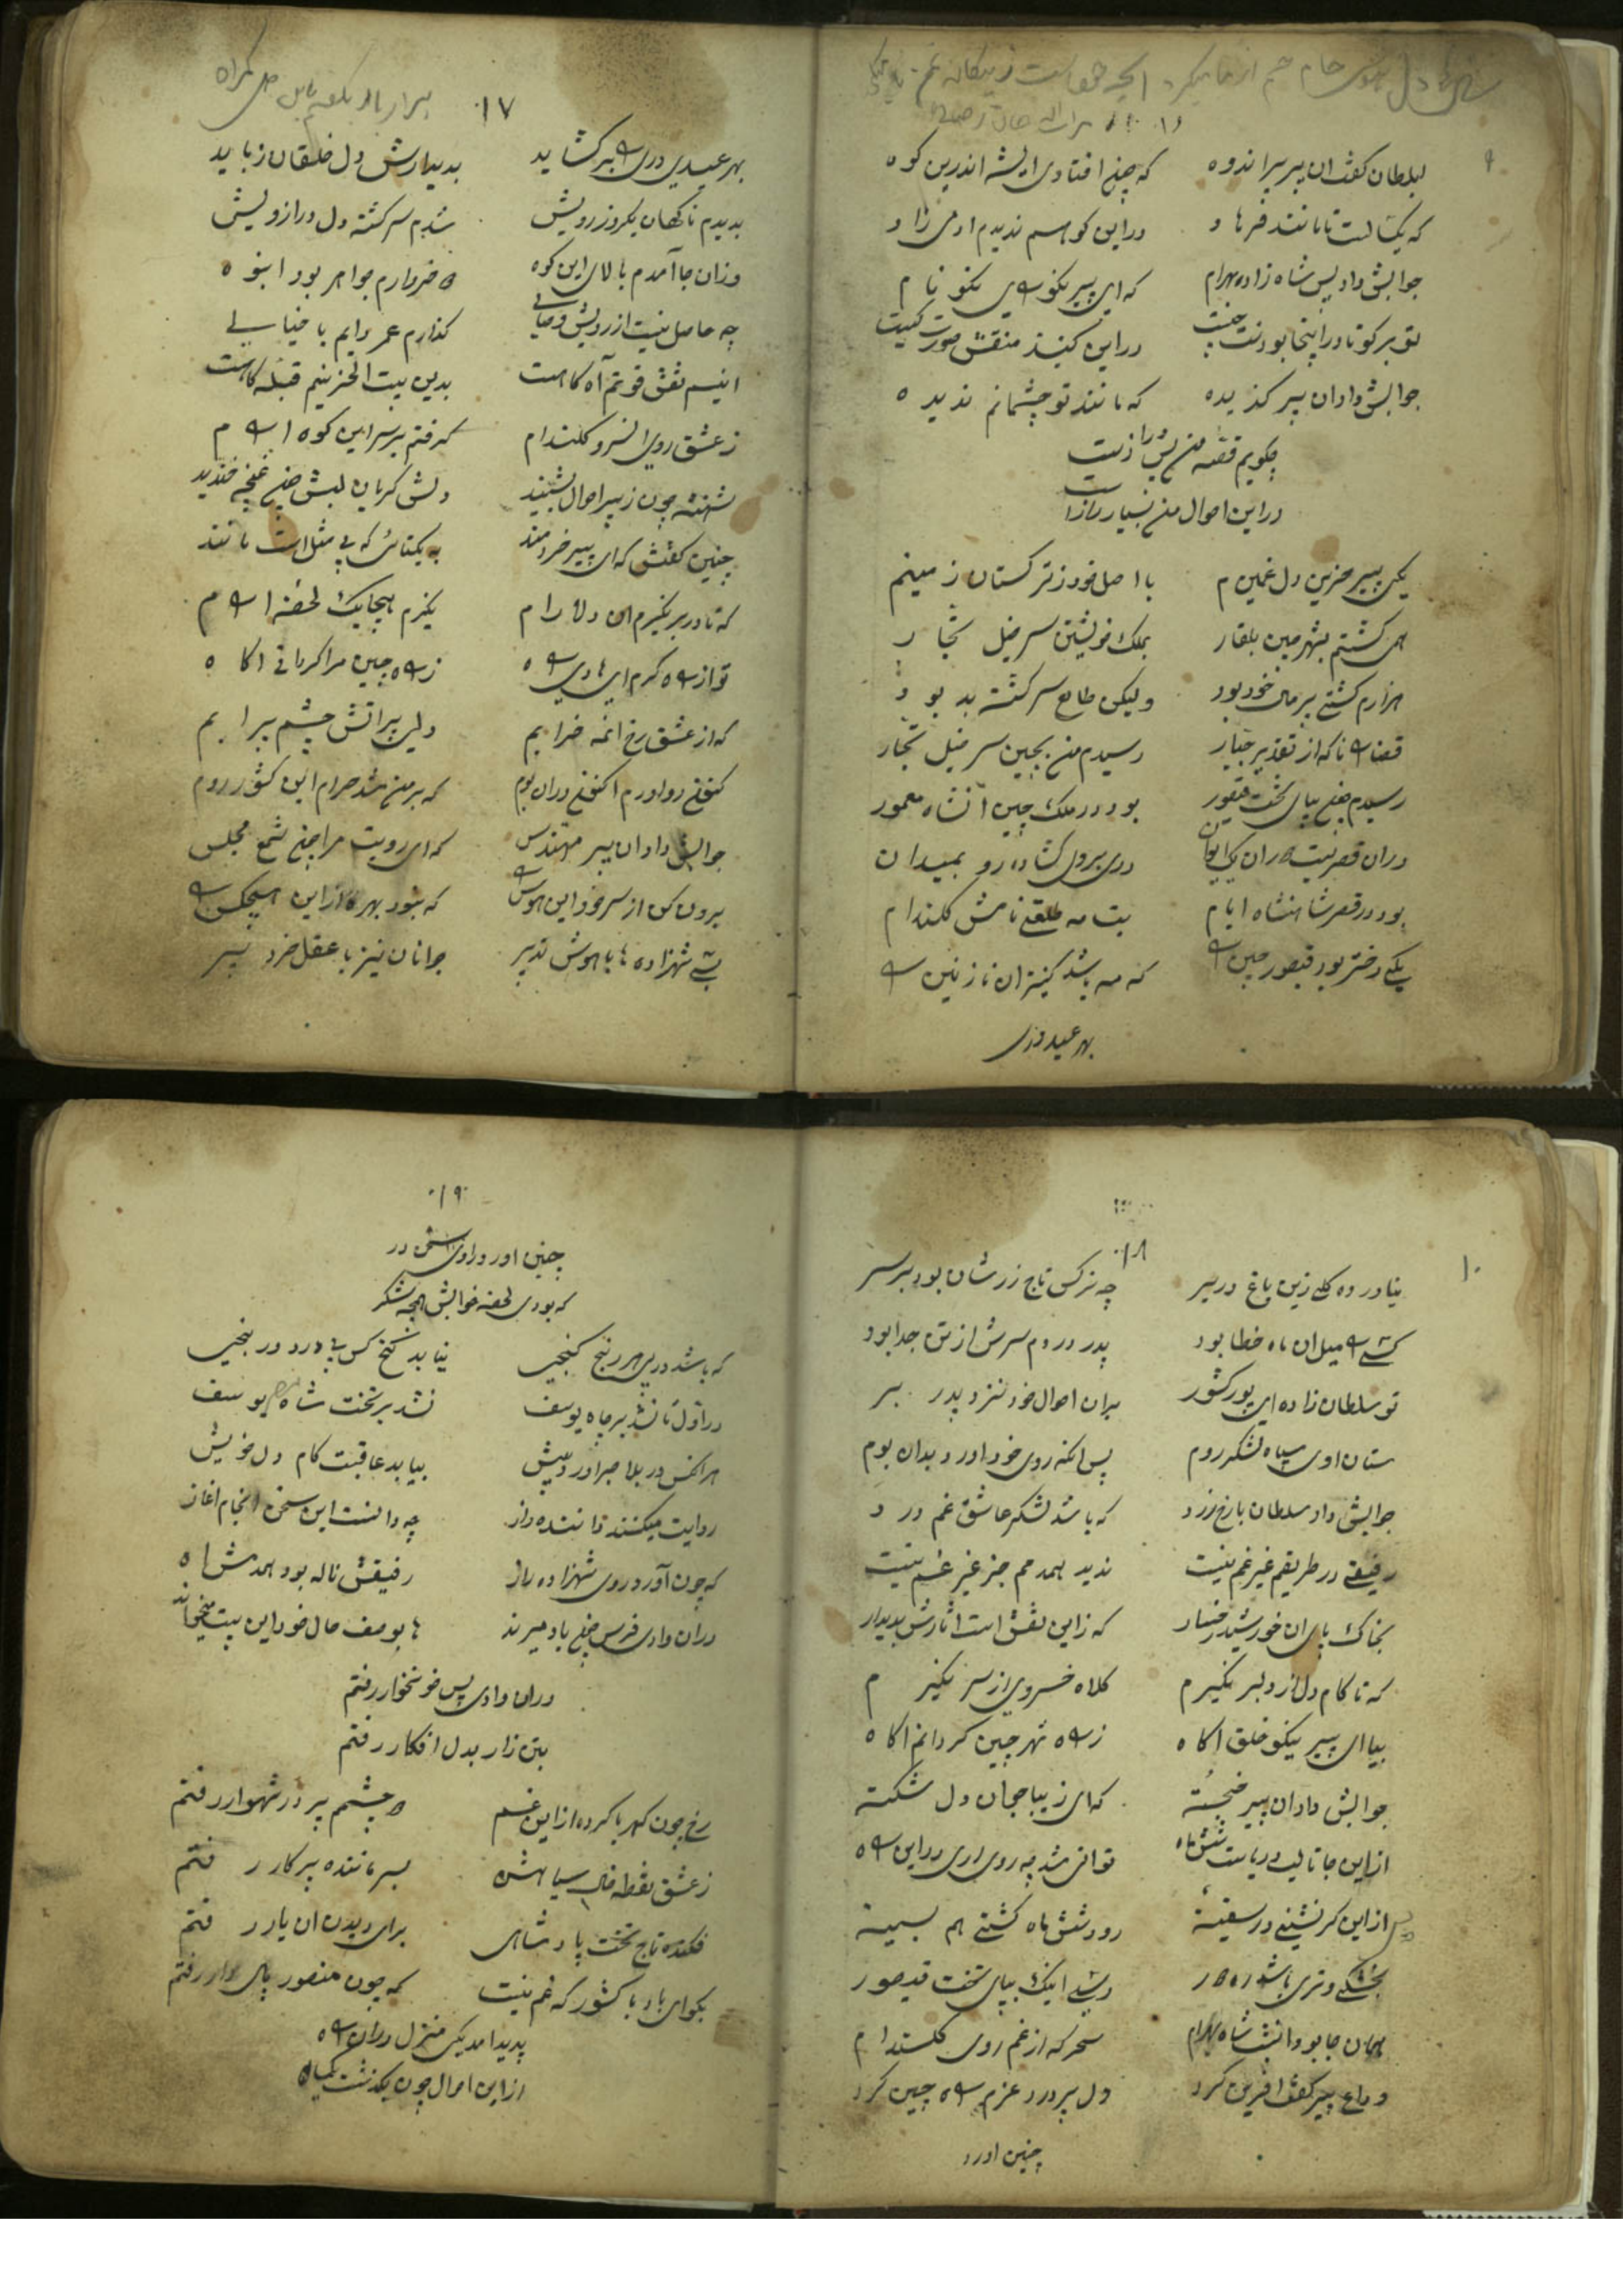 ۱۶
بسلطان گفت ان پیر پر اندوه که چون افتادی ای شه اندرین کوه
که یکسالست تا مانند فرهاد در این کوهسم ندیدم ادمی زاد
جوابش داد پس شاه زاده بهرام که ای پیر نکو رای نکو نام
تو برکو تا در اینجا بودنت چیست در این کنبذ منقش صورت کیست
جوابش داد ان پیر کزیده که مانند تو چشمانم ندیده
چکویم قصه من پس درازست
در این احوال من بسیار رازست
یکی پیر حزین دل غمین م با اصل خود ز ترکستان زمینم
همی کشتم بشهر چین بلغار بملک خویشتن سرخیل تجار
هزارم کشتی پر مال خود بود ولیکن طالع سرکشته بد بود
قضا را ناکه از تقدیر جبار رسیدم من بچین سرخیل تجار
رسیدم چون بپای تخت قیصور بود در ملک چین آنشاه معمور
دران قصریست دران یک ایوان دری بیرون کشاده رو بمیدان
بود در قصر شاهنشاه ایام بت مه طلعتی نامش کلندام
یکی دختر بود قیصور چین را که مه باشد کنیز ان نازنین را
بهر عیدی دری
۱۷
بهر عیدی دری را بر کشاید بدیدارش دل خلقان زباید
بدیدم ناکهان یکروز رویش شدم سرکشته دل در از ویش
وزان جا آمدم بالای این کوه ه خروارم جواهر بود انبوه
چه حاصل نیست از رویش وصالی کذارم عمر دایم با خیالی
انیسم نقش قوتم آه کاهست بدین بیت الحزینم قبله کاهست
ز عشق روی ان سرو کلندام کرفتم بر سر این کوه ارام
شهنشه چون ز پیر احوال بشنید دلش کریان لبش چون غنچه خندید
چنین کفتش که ای پیر خردمند به یکتائی که بی مثل است مانند
که تا در بر نکیرم ان دلارام نکیرم هیچ یک لحظه ارام
تو از راه کرم ای هادی راه ز راه چین مرا کردانی اکاه
که از عشق رخ انمه خرابم ولی پر اتش چشم پر ابم
کنون رو اورم اکنون دران بوم که بر من شد حرام این کشور روم
جوابش داد ان پیر مهندس که ای رویت مرا چون شمع مجلس
برون کن از سر خود این هوس را که نبود بهره از این هیچکس را
بسی شهزاده ها با هوش تدبیر جوانان نیز با عقل خرد پیر
۱۸
نیاورده کلی زین باغ در بر چه نرکس تاج زر شان بود بر سر
کسی را میل ان ماه خطا بود پدر در دم سرش از تن جدا بود
تو سلطان زاده ای پور کشور بران احوال خود نزد پدر بر
ستان اوی سپاه لشکر روم پس انکه روی خود اور دبدان بوم
جوابش داد سلطان با رخ زرد که باشد لشکر عاشق غم درد
رفیقی در طریقم غیر غم نیست ندید همدمم جز غیر غم نیست
بخاک پای ان خورشید رخسار که زاین نقش است اثارش پدیدار
که تا کام دل از دلبر نکیرم کلاه خسروی از سر نکیرم
بیا ای پیر نیکو خلق اکاه ز راه شهر چین کردانم اکاه
جوابش داد ان پیر خجسته که ای زیبا جوان دل شکسته
از این جا تا لب دریاست شش ماه توانی شد چه روی اری در این راه
از این کر نشینی در سفینه رود شش ماه کشتی هم بسینه
همان جا بود انشب شاه بهرام سحر که از غم روی کلندام
وداع پیر کفت افرین کرد دل پر درد عزم راه چین کرد
چنین اورد
۱۹
چنین اورد راوی سخن در
که بودی لحظه خوابش همچه شکر
که باشد در پی هر رنج کنجی نیابد کنج کس بی درد و رنجی
در اول تا نشد بر چاه یوسف نشد بر تخت شاه مصر یوسف
هر انکس در بلا صبر اورد پیش بیابد عاقبت کام دل خویش
روایت میکنند داننده راز چه دانست این سخن انجام اغاز
که چون آورد روی شهزاده براه رفیقش ناله بود همدمش اه
دران وادی فرس چون باد میراند بوصف حال خود این بیت میخواند
دران وادی پس خونخوار رفتم
بتن زار بدل افکار رفتم
رخ چون کهربا کرده از این غم ه چشم پر در شهوار رفتم
ز عشق نقطه خال سیاهش بسر ماننده پرکار رفتم
فکنده تاج تخت پادشاهی برای دیدن ان یار رفتم
بکو ای باد با کشور که غم نیست که چون منصور پای دار رفتم
پدید امد یکی منزل دران راه
از این احوال چون بکذشت یکماه